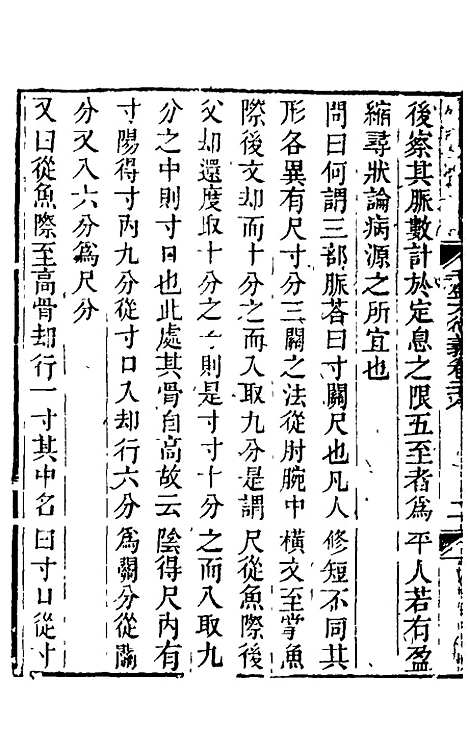 後察其脈數計於定息之限五至者爲平人若有盈
縮尋狀論病源之所宜也
問曰何謂三部脈荅曰寸關尺也凡人修短不同其
形各異有尺寸分三關之法從肘腕中橫文至掌魚
際後文却而十分之而入取九分是謂尺從魚際後
文却還度取十分之一則是寸寸十分之而入取九
分之中則寸口也此處其骨自高故云陰得尺内有
寸陽得寸内九分從寸口入却行六分爲關分從關
分又入六分爲尺分
又曰從魚際至高骨却行一寸其中名曰寸口從寸